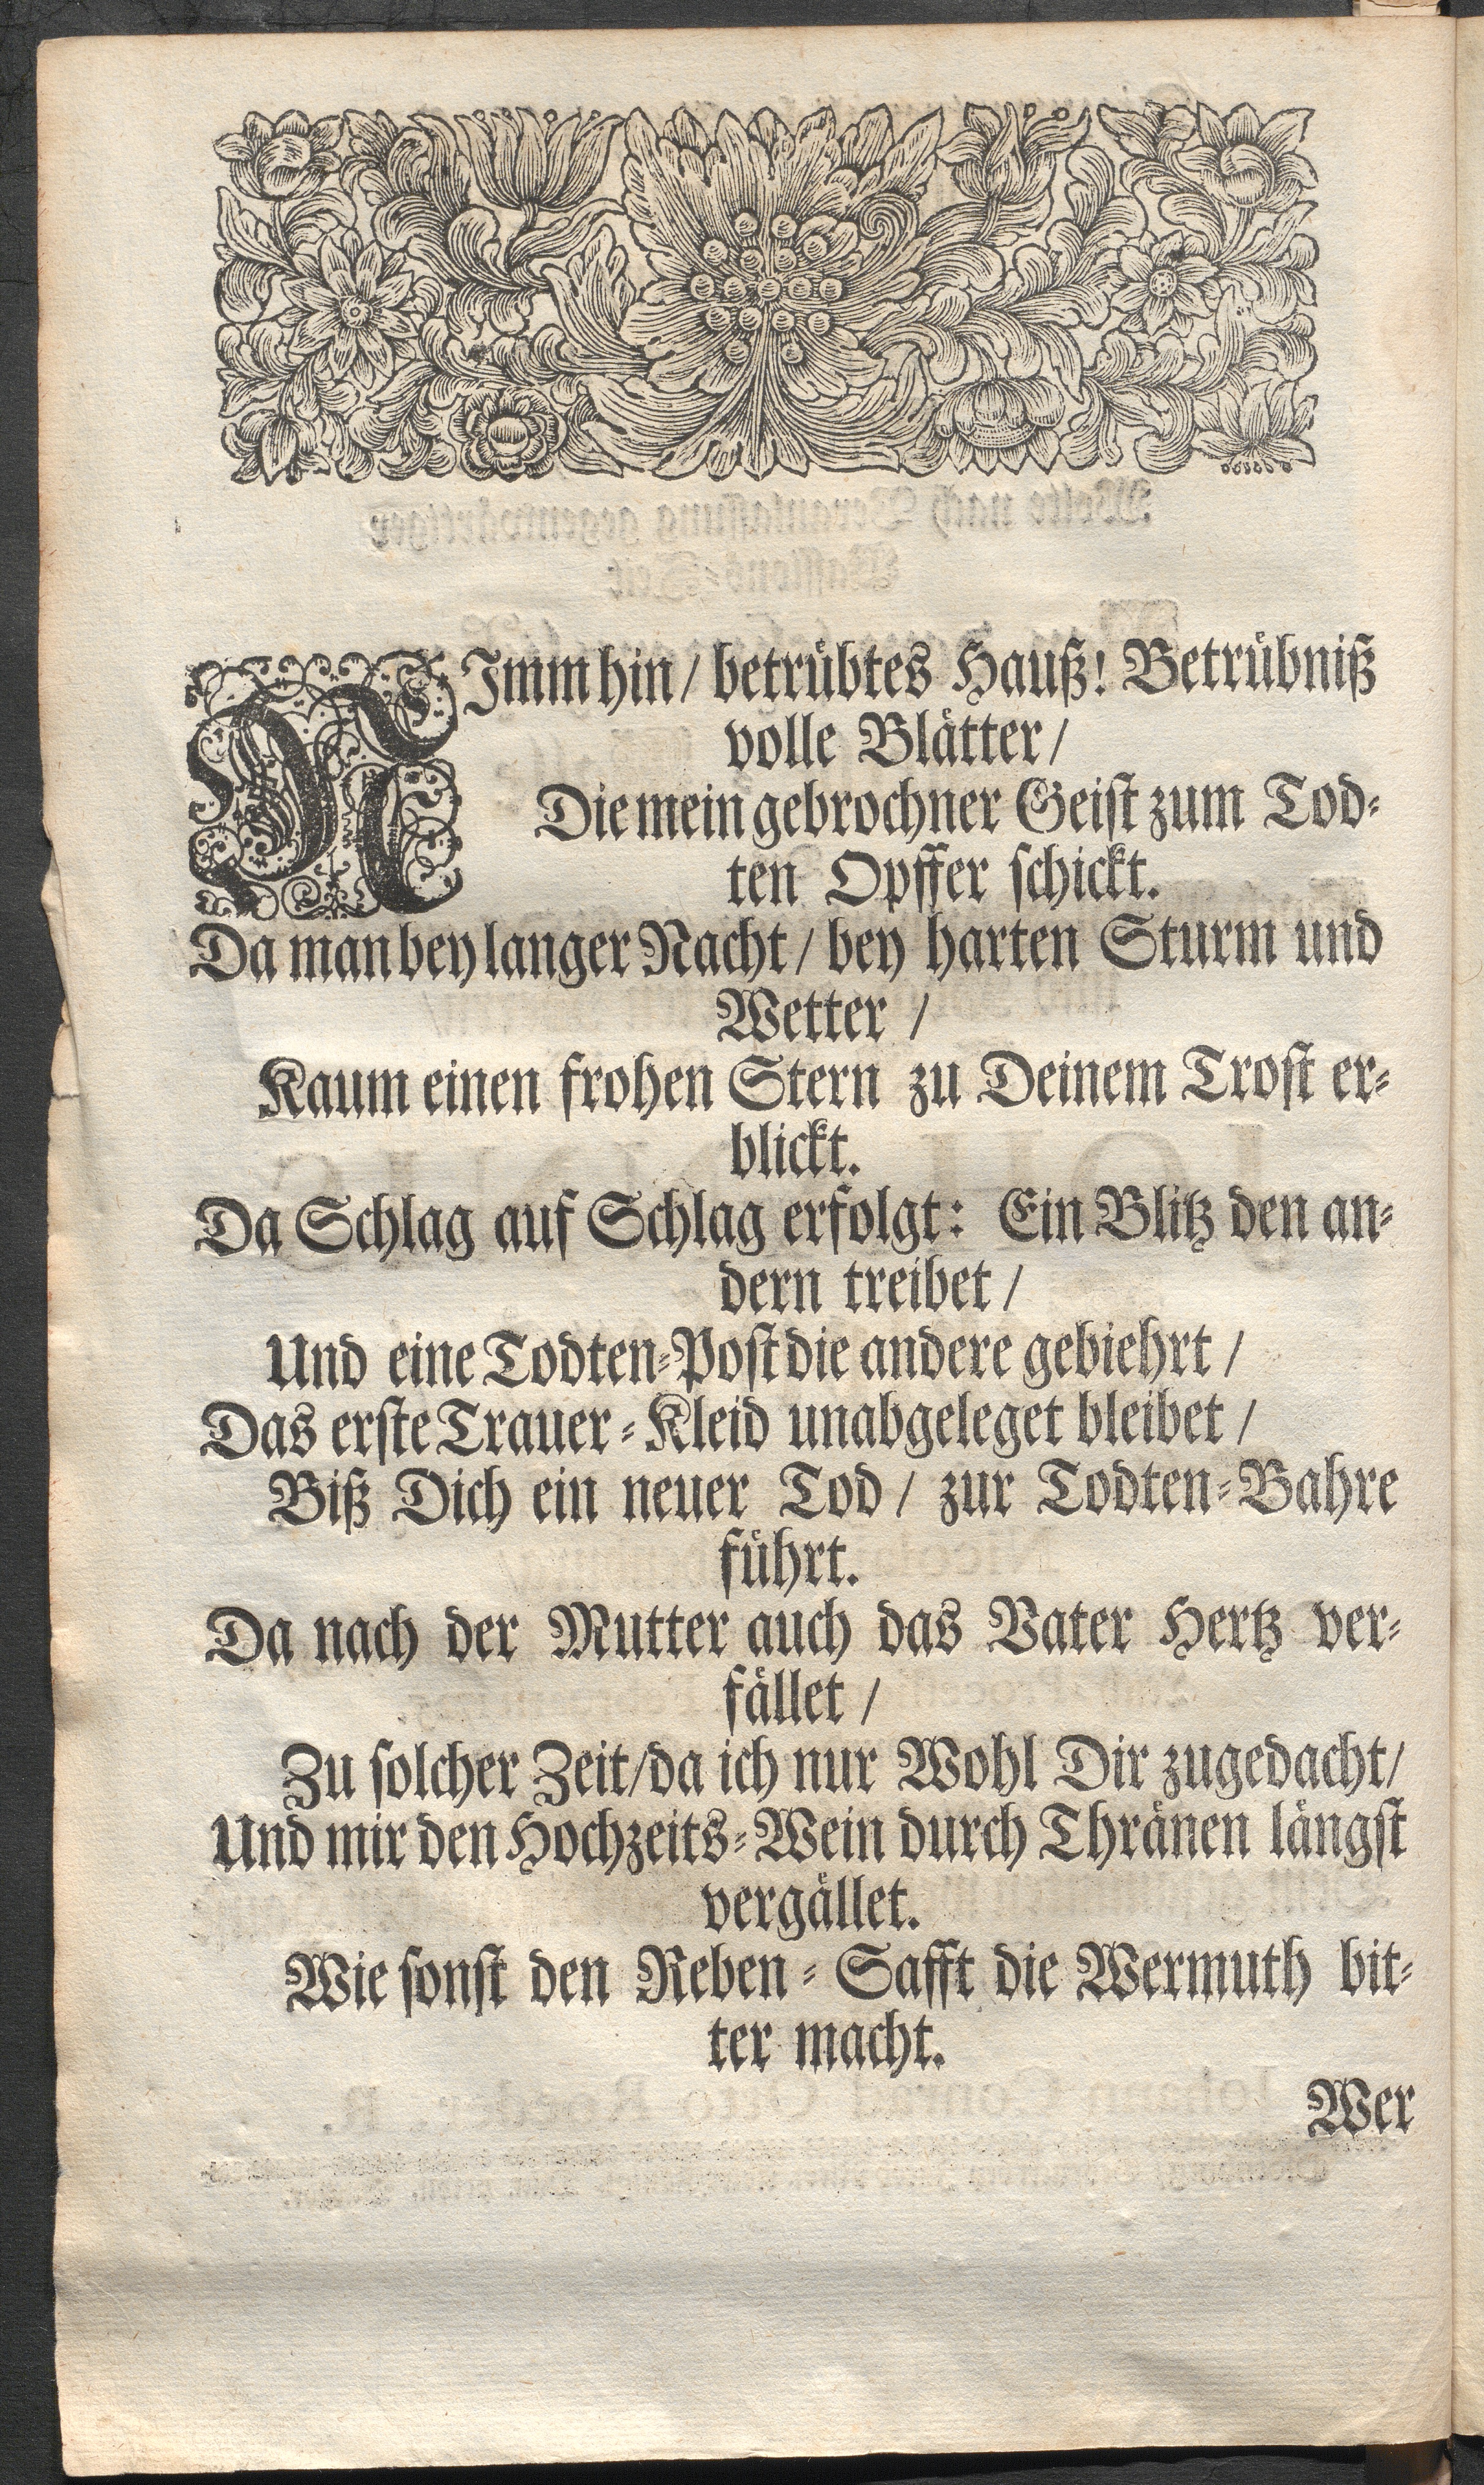 NImm hin / betrübtes Hauß! Betrübniß
volle Blätter /
Die mein gebrochner Geist zum Tod-
ten Opffer schickt.
Da man bey langer Nacht / bey harten Sturm und
Wetter /
Kaum einen frohen Stern zu Deinem Trost er-
blickt.
Da Schlag auf Schlag erfolgt: Ein Blitz den an-
dern treibet /
Und eine Todten-Post die andere gebiehrt /
Das erste Trauer-Kleid unabgeleget bleibet /
Biß Dich ein neuer Tod / zur Todten-Bahre
führt.
Da nach der Mutter auch das Vater Hertz ver-
fället /
Zu solcher Zeit/da ich nur Wohl Dir zugedacht/
Und mir den Hochzeits-Wein durch Thränen längst
vergället.
Wie sonst den Reben-Safft die Wermuth bit-
ter macht.
Wer